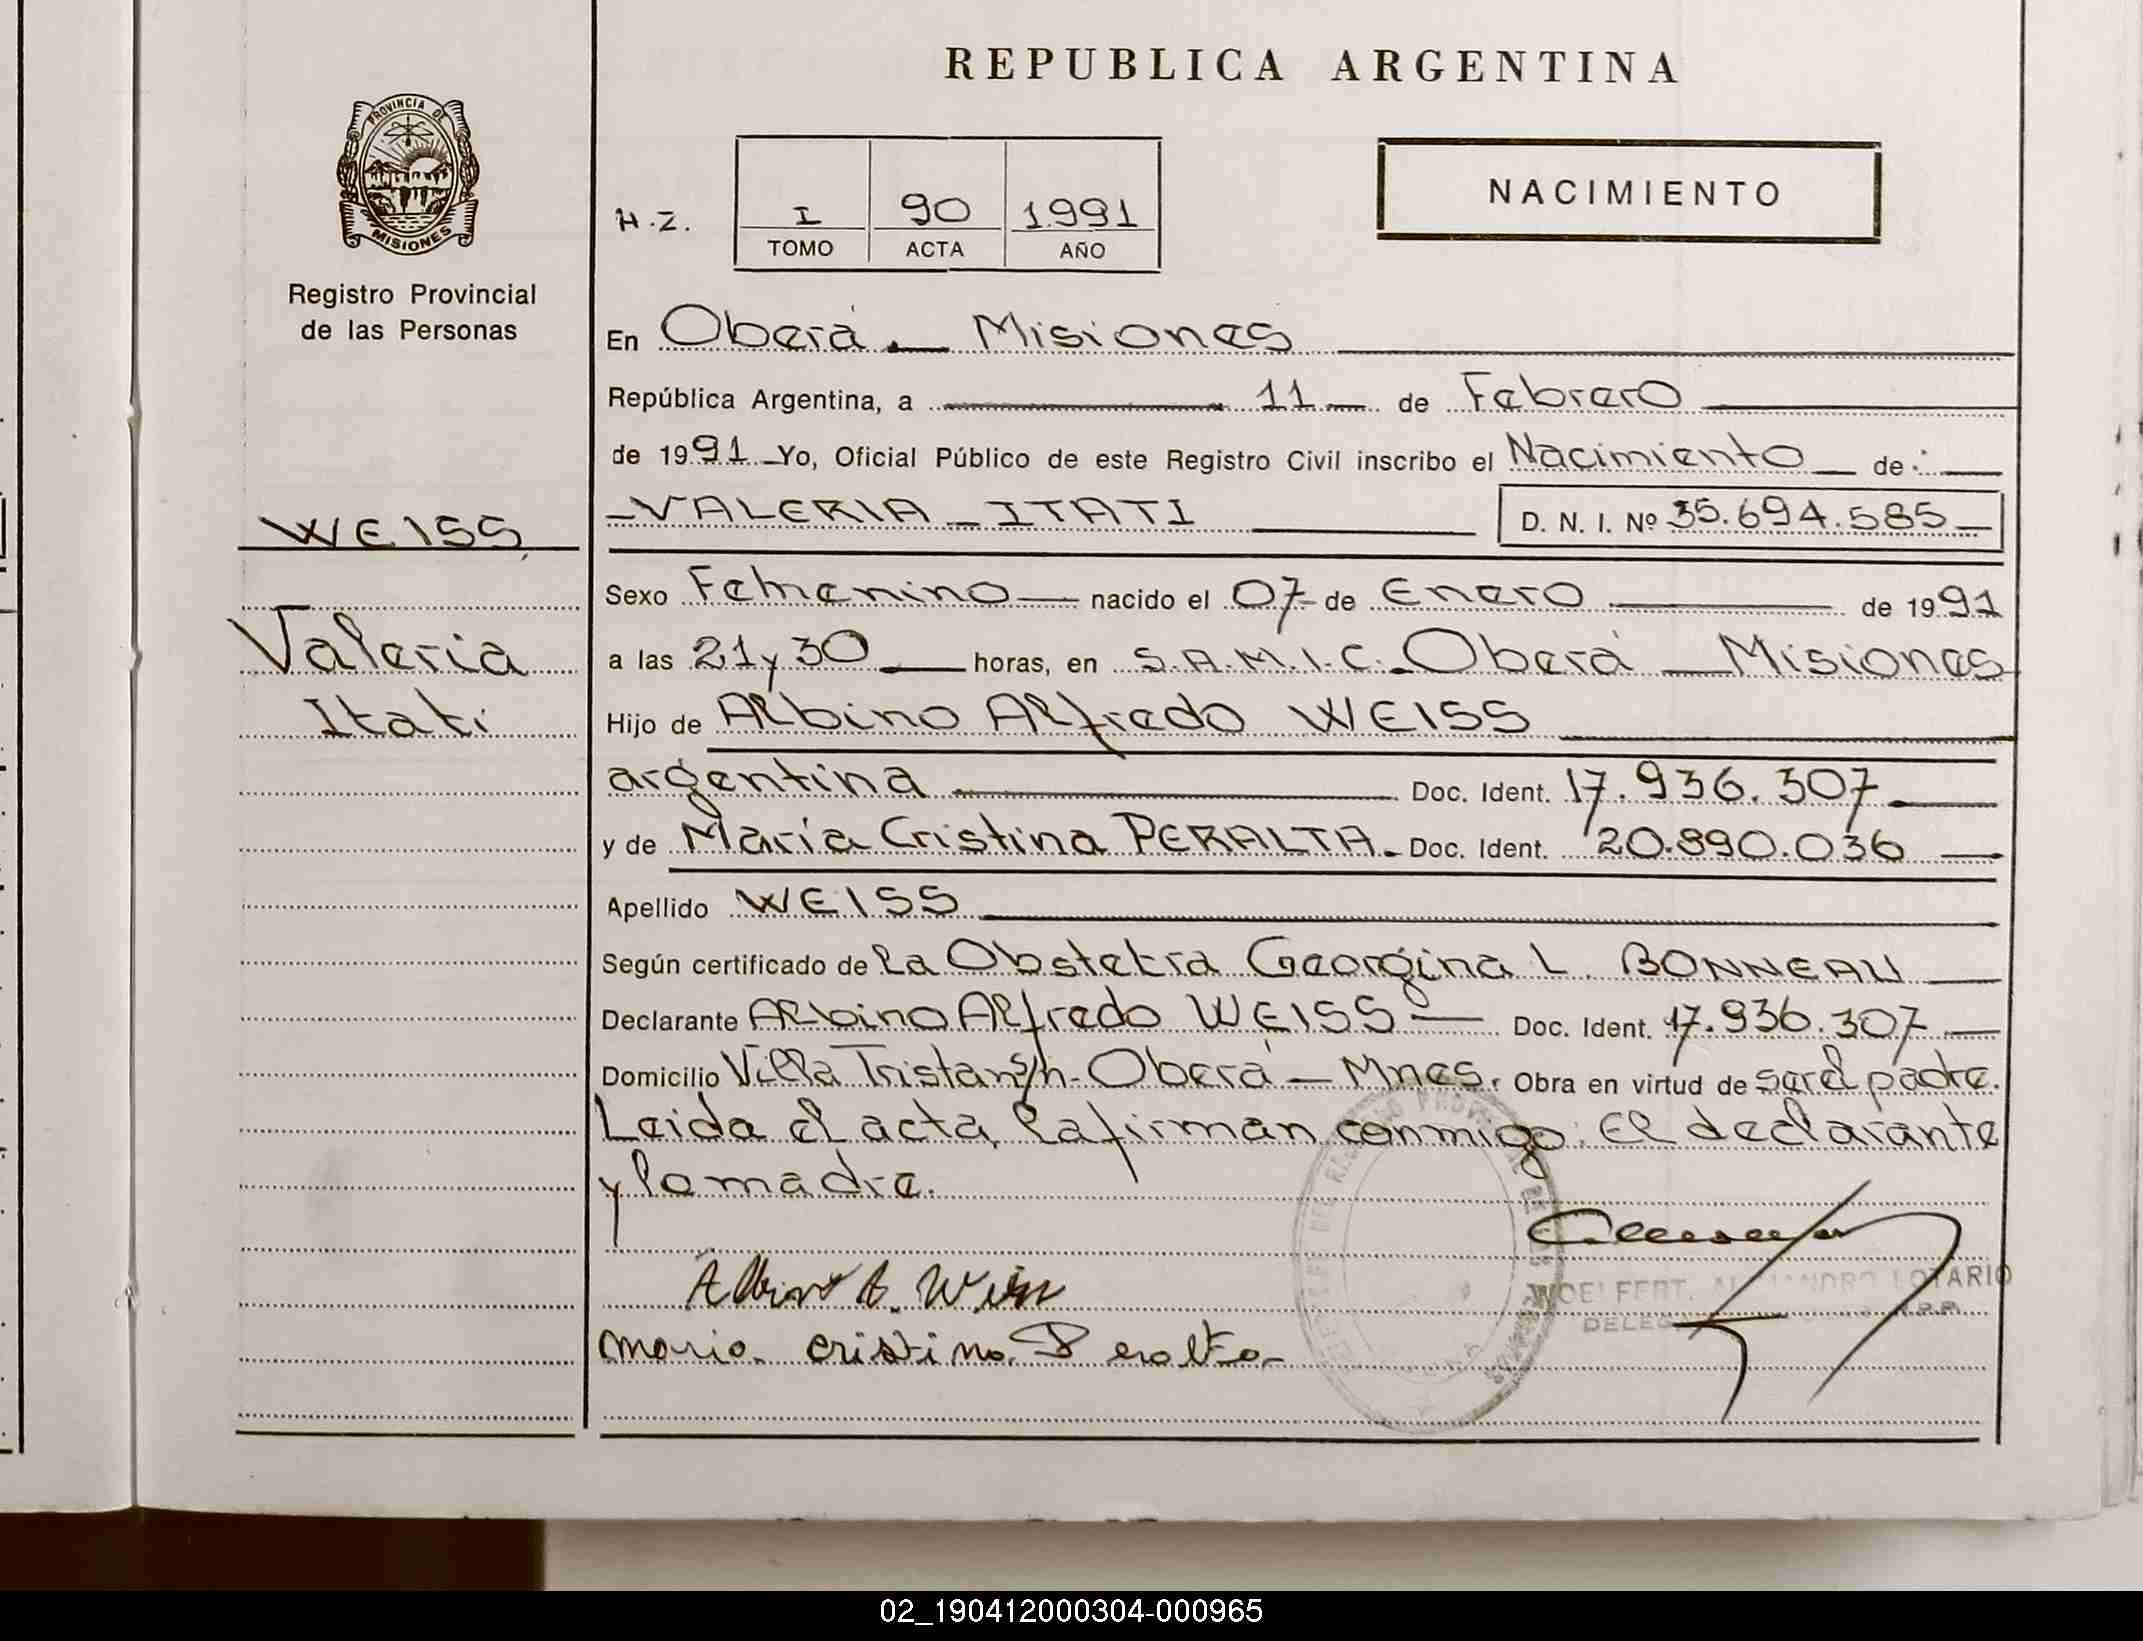 REPUBLICA ARGENTINA
PROVINCIA DE
MISIONES
Registro Provincial
de las Personas
H.Z.
I 90 1991
TOMO ACTA AÑO
NACIMIENTO
En Oberá - Misiones
República Argentina, a 11 de Febrero
de 1991 Yo, Oficial Público de este Registro Civil inscribo el Nacimiento de:
VALERIA ITATI D. N. I. Nº 35.694.585
WEISS
Valeria
Itatí
Sexo Femenino nacido el 07 de Enero de 1991
a las 21 y 30 horas, en S.A.M.I.C. Oberá - Misiones
Hijo de Albino Alfredo WEISS
argentina Doc. Ident. 17.936.307
y de María Cristina PERALTA Doc. Ident. 20.890.036
Apellido WEISS
Según certificado de la Obstetra Georgina L. BONNEAU
Declarante Albino Alfredo WEISS Doc. Ident. 17.936.307
Domicilio Villa Tristan s/n - Oberá - Mnes. Obra en virtud de ser el padre.
Leida el acta, la firman conmigo: El declarante
y la madre.
Albino A. Weiss
maria cristina Peralta
LOTARIO
02_190412000304-000965